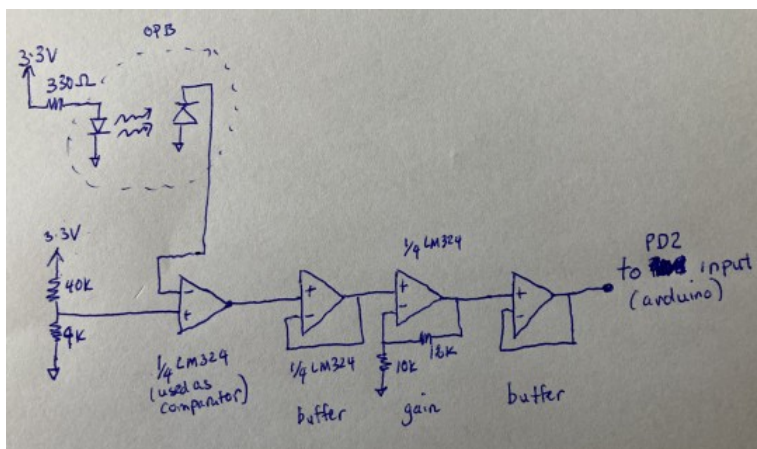 OPB
3.3V
330Ω
3.3V
40K
4K
-
+
1/4 LM324
(used as
comparator)
+
-
1/4 LM324
buffer
1/4 LM324
+
-
18K
10K
gain
+
-
buffer
PD2
to input
(arduino)